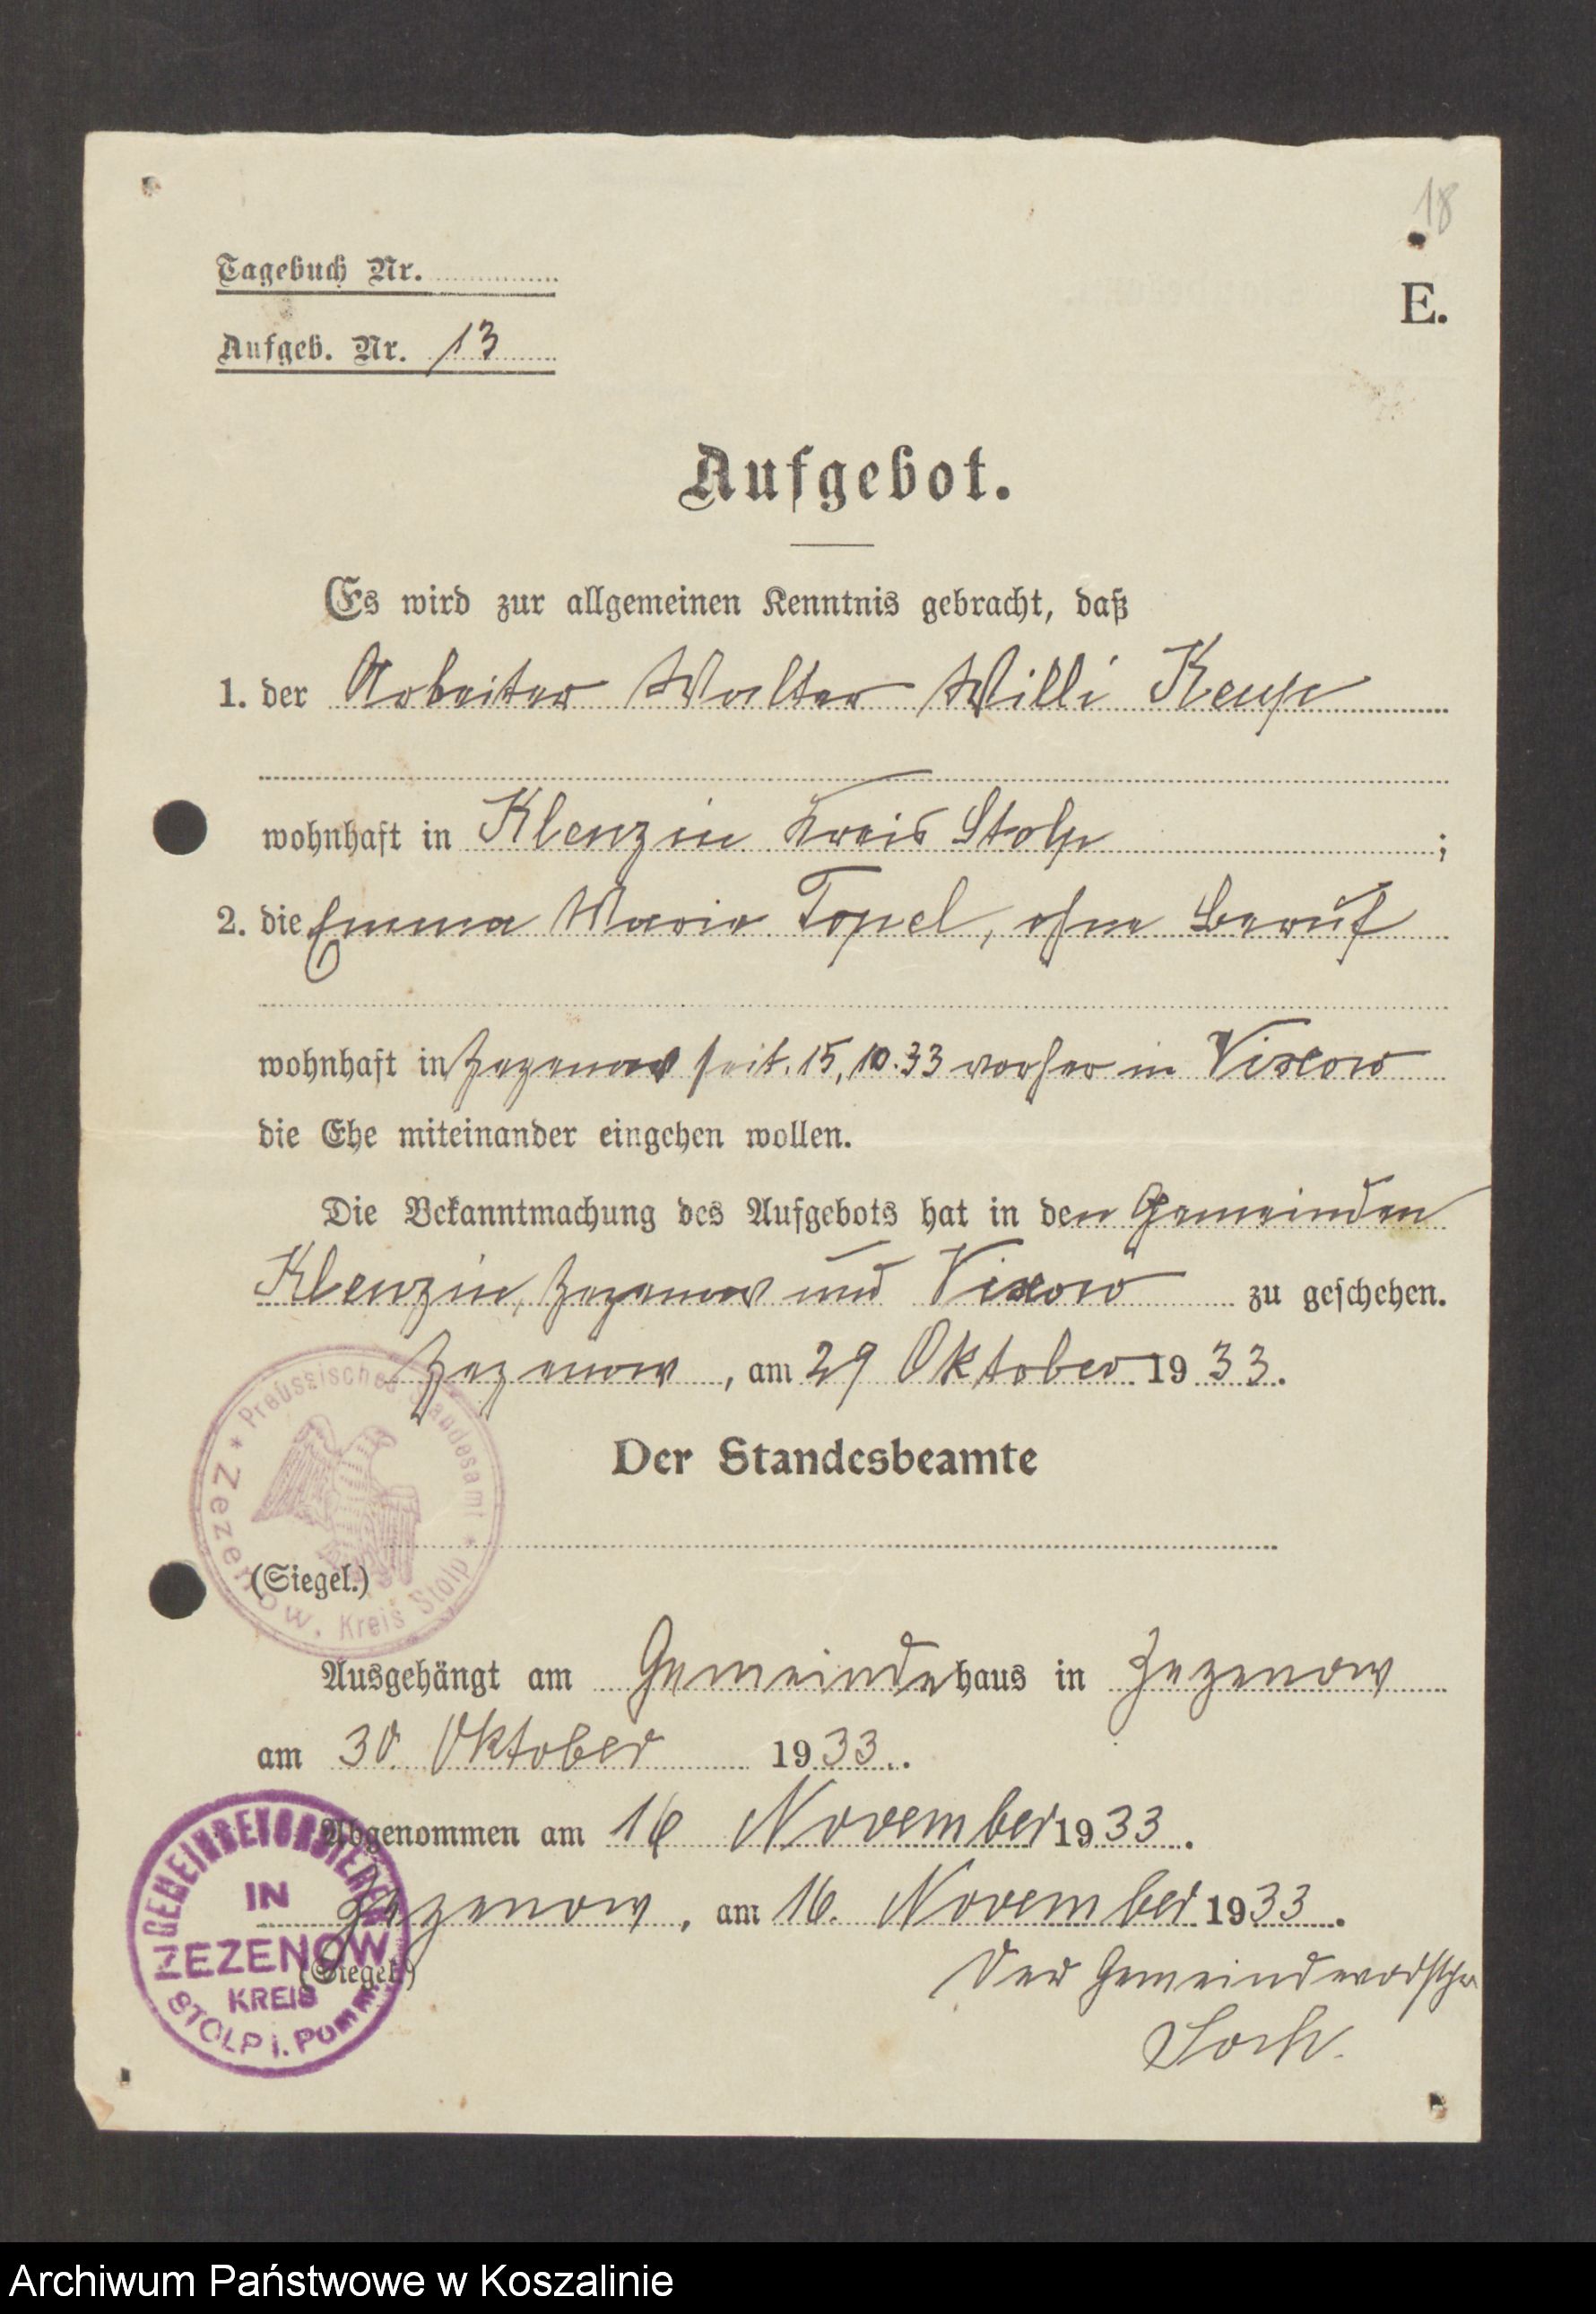 18
Tagebuch Nr.
E.
Aufgeb. Nr. 13
Aufgebot.
Es wird zur allgemeinen Kenntnis gebracht, daß
1. der Arbeiter Walter Willi Keup
wohnhaft in Klenzin Kreis Stolp ;
2. die Emma Marie Topel, ohne Beruf
wohnhaft in Zezenow seit. 15.10.33 vorher in Vixow
die Ehe miteinander eingehen wollen.
Die Bekanntmachung des Aufgebots hat in den Gemeinden
Klenzin, Zezenow und Vixow zu geschehen.
Zezenow, am 29 Oktober 1933.
Preussisches Standesamt * Zezenow. Kreis Stolp *
Der Standesbeamte
(Siegel.)
Ausgehängt am Gemeindehaus in Zezenow
am 30. Oktober 1933.
Abgenommen am 16 November 1933.
Zezenow, am 16. November 1933.
GEMEINDEVORSTEHER
IN
ZEZENOW
KREIS
STOLP i. Pom.
(Siegel.)
Der Gemeindevorsteher
Archiwum Państwowe w Koszalinie